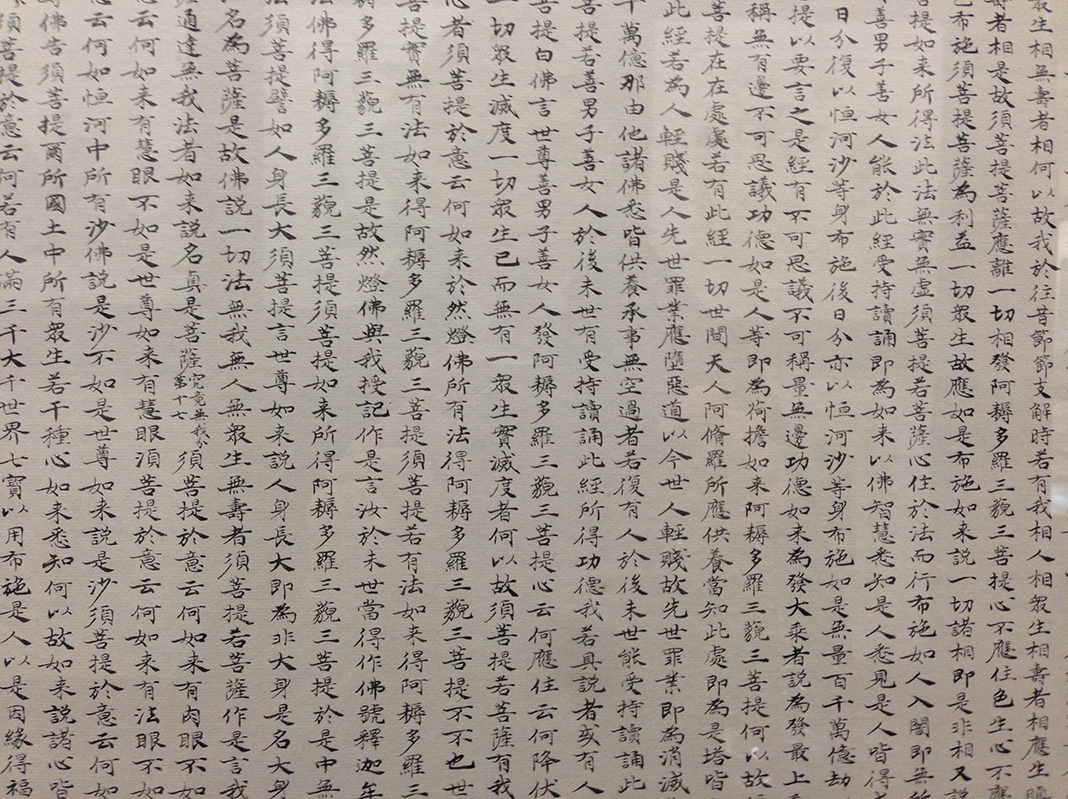 眾生相無壽者相何以故我於往昔節節支解時若有我相人相眾生相壽者相應生瞋
壽者相是故須菩提菩薩應離一切相發阿耨多羅三藐三菩提心不應住色生心不應
色布施須菩提菩薩為利益一切眾生故應如是布施如来說一切諸相即是非相又說
菩提如来所得法此法無實無虛須菩提若菩薩心住於法而行布施如人入闇即無所
善男子善女人能於此經受持讀誦即為如来以佛智慧悉知是人悉見是人皆得
日分復以恒河沙等身布施後日分亦以恒河沙等身布施如是無量百千萬億劫
提以要言之是經有不可思議不可稱量無邊功德如来為發大乘者說為發最上
稱無有邊不可思議功德如是人等即為荷擔如来阿耨多羅三藐三菩提何以故
菩提在在處處若有此經一切世間天人阿脩羅所應供養當知此處即為是塔皆
此經若為人輕賤是人先世罪業應墮惡道以今世人輕賤故先世罪業即為消滅
千萬億那由他諸佛悉皆供養承事無空過者若復有人於後末世能受持讀誦此
提若善男子善女人於後末世有受持讀誦此經所得功德我若具說者或有人
菩提白佛言世尊善男子善女人發阿耨多羅三藐三菩提心云何應住云何降伏
一切眾生滅度一切眾生已而無有一眾生實滅度者何以故須菩提若菩薩有我
心者須菩提於意云何如来於然燈佛所有法得阿耨多羅三藐三菩提不不也世
菩提實無有法如来得阿耨多羅三藐三菩提須菩提若有法如来得阿耨多羅三
多羅三藐三菩提是故然燈佛與我授記作是言汝於未世當得作佛號釋迦牟
法佛得阿耨多羅三藐三菩提須菩提如来所得阿耨多羅三藐三菩提於是中無
須菩提譬如人身長大須菩提言世尊如来說人身長大即為非大身是名大身
名為菩薩是故佛說一切法無我無人無眾生無壽者須菩提若菩薩作是言我
通達無我法者如来說名真是菩薩究竟無我分第十七須菩提於意云何如来有肉眼不如
云何如来有慧眼不如是世尊如来有慧眼須菩提於意云何如来有法眼不如
云何如恒河中所有沙佛說是沙不如是世尊如来說是沙須菩提於意云何如
佛告須菩提爾所國土中所有眾生若干種心如来悉知何以故如来說諸心皆
須菩提於意云何若有人滿三千大千世界七寶以用布施是人以是因緣得福